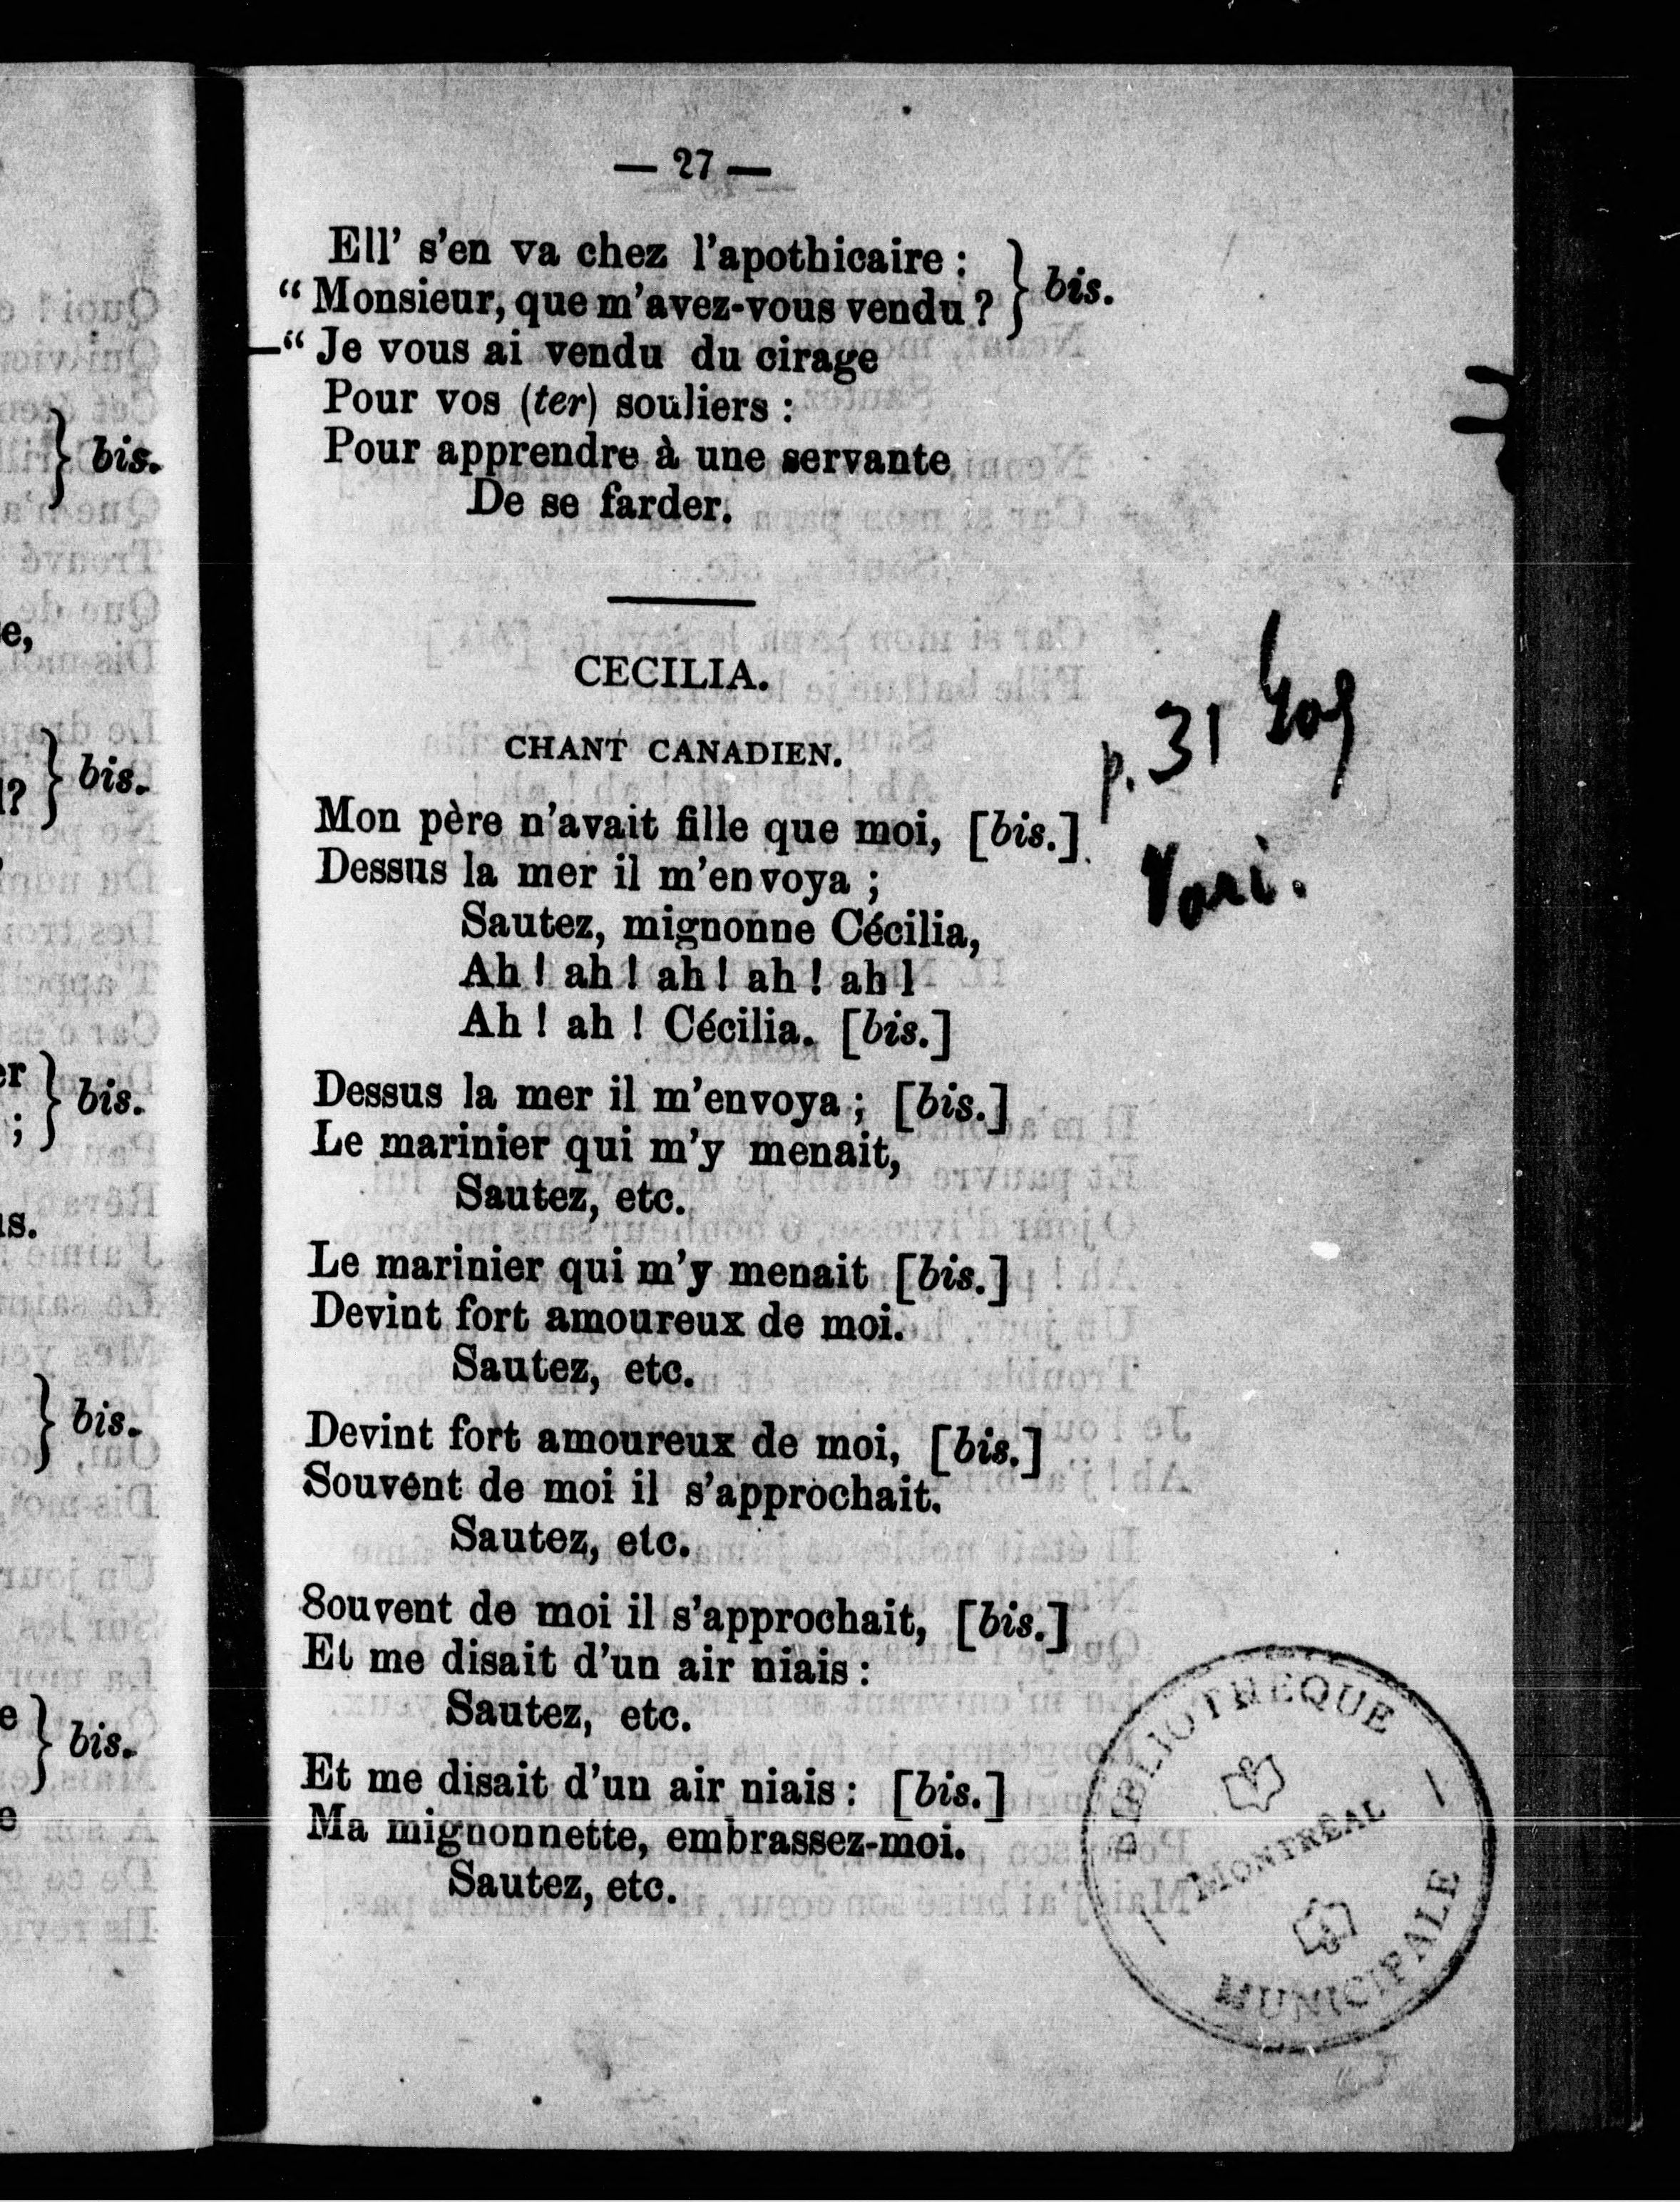 — 27 —
Ell' s'en va chez l'apothicaire : } bis.
“ Monsieur, que m'avez-vous vendu ?
—“ Je vous ai vendu du cirage
Pour vos (ter) souliers :
Pour apprendre à une servante
De se farder.
CECILIA.
CHANT CANADIEN.
p. 31
Vari.
Mon père n'avait fille que moi, [bis.]
Dessus la mer il m'envoya ;
Sautez, mignonne Cécilia,
Ah ! ah ! ah ! ah ! ah !
Ah ! ah ! Cécilia. [bis.]
Dessus la mer il m'envoya ; [bis.]
Le marinier qui m'y menait,
Sautez, etc.
Le marinier qui m'y menait [bis.]
Devint fort amoureux de moi.
Sautez, etc.
Devint fort amoureux de moi, [bis.]
Souvent de moi il s'approchait.
Sautez, etc.
Souvent de moi il s'approchait, [bis.]
Et me disait d'un air niais :
Sautez, etc.
Et me disait d'un air niais : [bis.]
Ma mignonnette, embrassez-moi.
Sautez, etc.
BIBLIOTHEQUE
MONTREAL
MUNICIPALE
} bis.
e,
} bis.
} bis.
is.
} bis.
} bis.